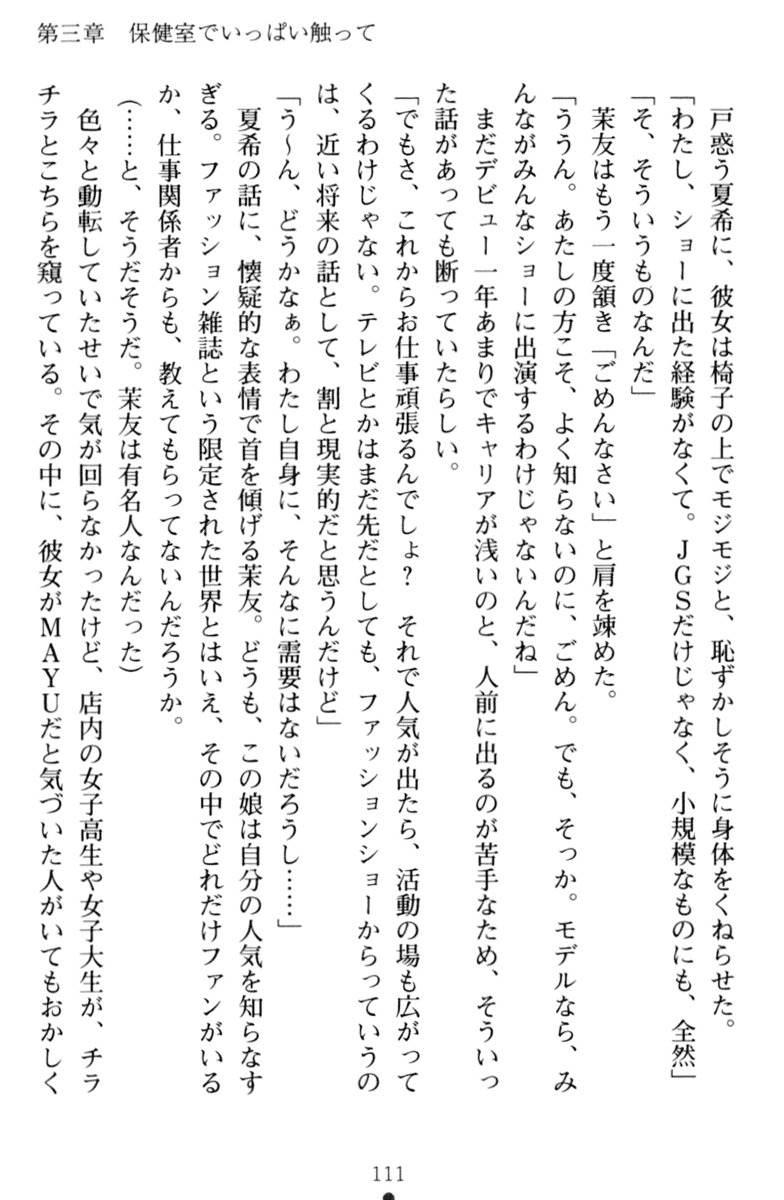 第三章　保健室でいっぱい触って
　戸惑う夏希に、彼女は椅子の上でモジモジと、恥ずかしそうに身体をくねらせた。
「わたし、ショーに出た経験がなくて。ＪＧＳだけじゃなく、小規模なものにも、全然」
「そ、そういうものなんだ」
　茉友はもう一度頷き「ごめんなさい」と肩を竦めた。
「ううん。あたしの方こそ、よく知らないのに、ごめん。でも、そっか。モデルなら、み
んながみんなショーに出演するわけじゃないんだね」
　まだデビュー一年あまりでキャリアが浅いのと、人前に出るのが苦手なため、そういっ
た話があっても断っていたらしい。
「でもさ、これからお仕事頑張るんでしょ？　それで人気が出たら、活動の場も広がって
くるわけじゃない。テレビとかはまだ先だとしても、ファッションショーからっていうの
は、近い将来の話として、割と現実的だと思うんだけど」
「う〜ん、どうかなぁ。わたし自身に、そんなに需要はないだろうし……」
　夏希の話に、懐疑的な表情で首を傾げる茉友。どうも、この娘は自分の人気を知らなす
ぎる。ファッション雑誌という限定された世界とはいえ、その中でどれだけファンがいる
か、仕事関係者からも、教えてもらってないんだろうか。
（……と、そうだそうだ。茉友は有名人なんだった）
　色々と動転していたせいで気が回らなかったけど、店内の女子高生や女子大生が、チラ
チラとこちらを窺っている。その中に、彼女がＭＡＹＵだと気づいた人がいてもおかしく
111